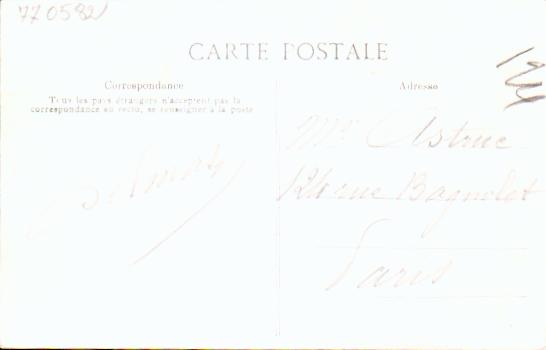 770582
CARTE POSTALE
Correspondance
Tous les pays étrangers n'acceptent pas la
correspondance au recto, se renseigner à la poste
Adresse
Mr Astruc
124 rue Bagnolet
Paris